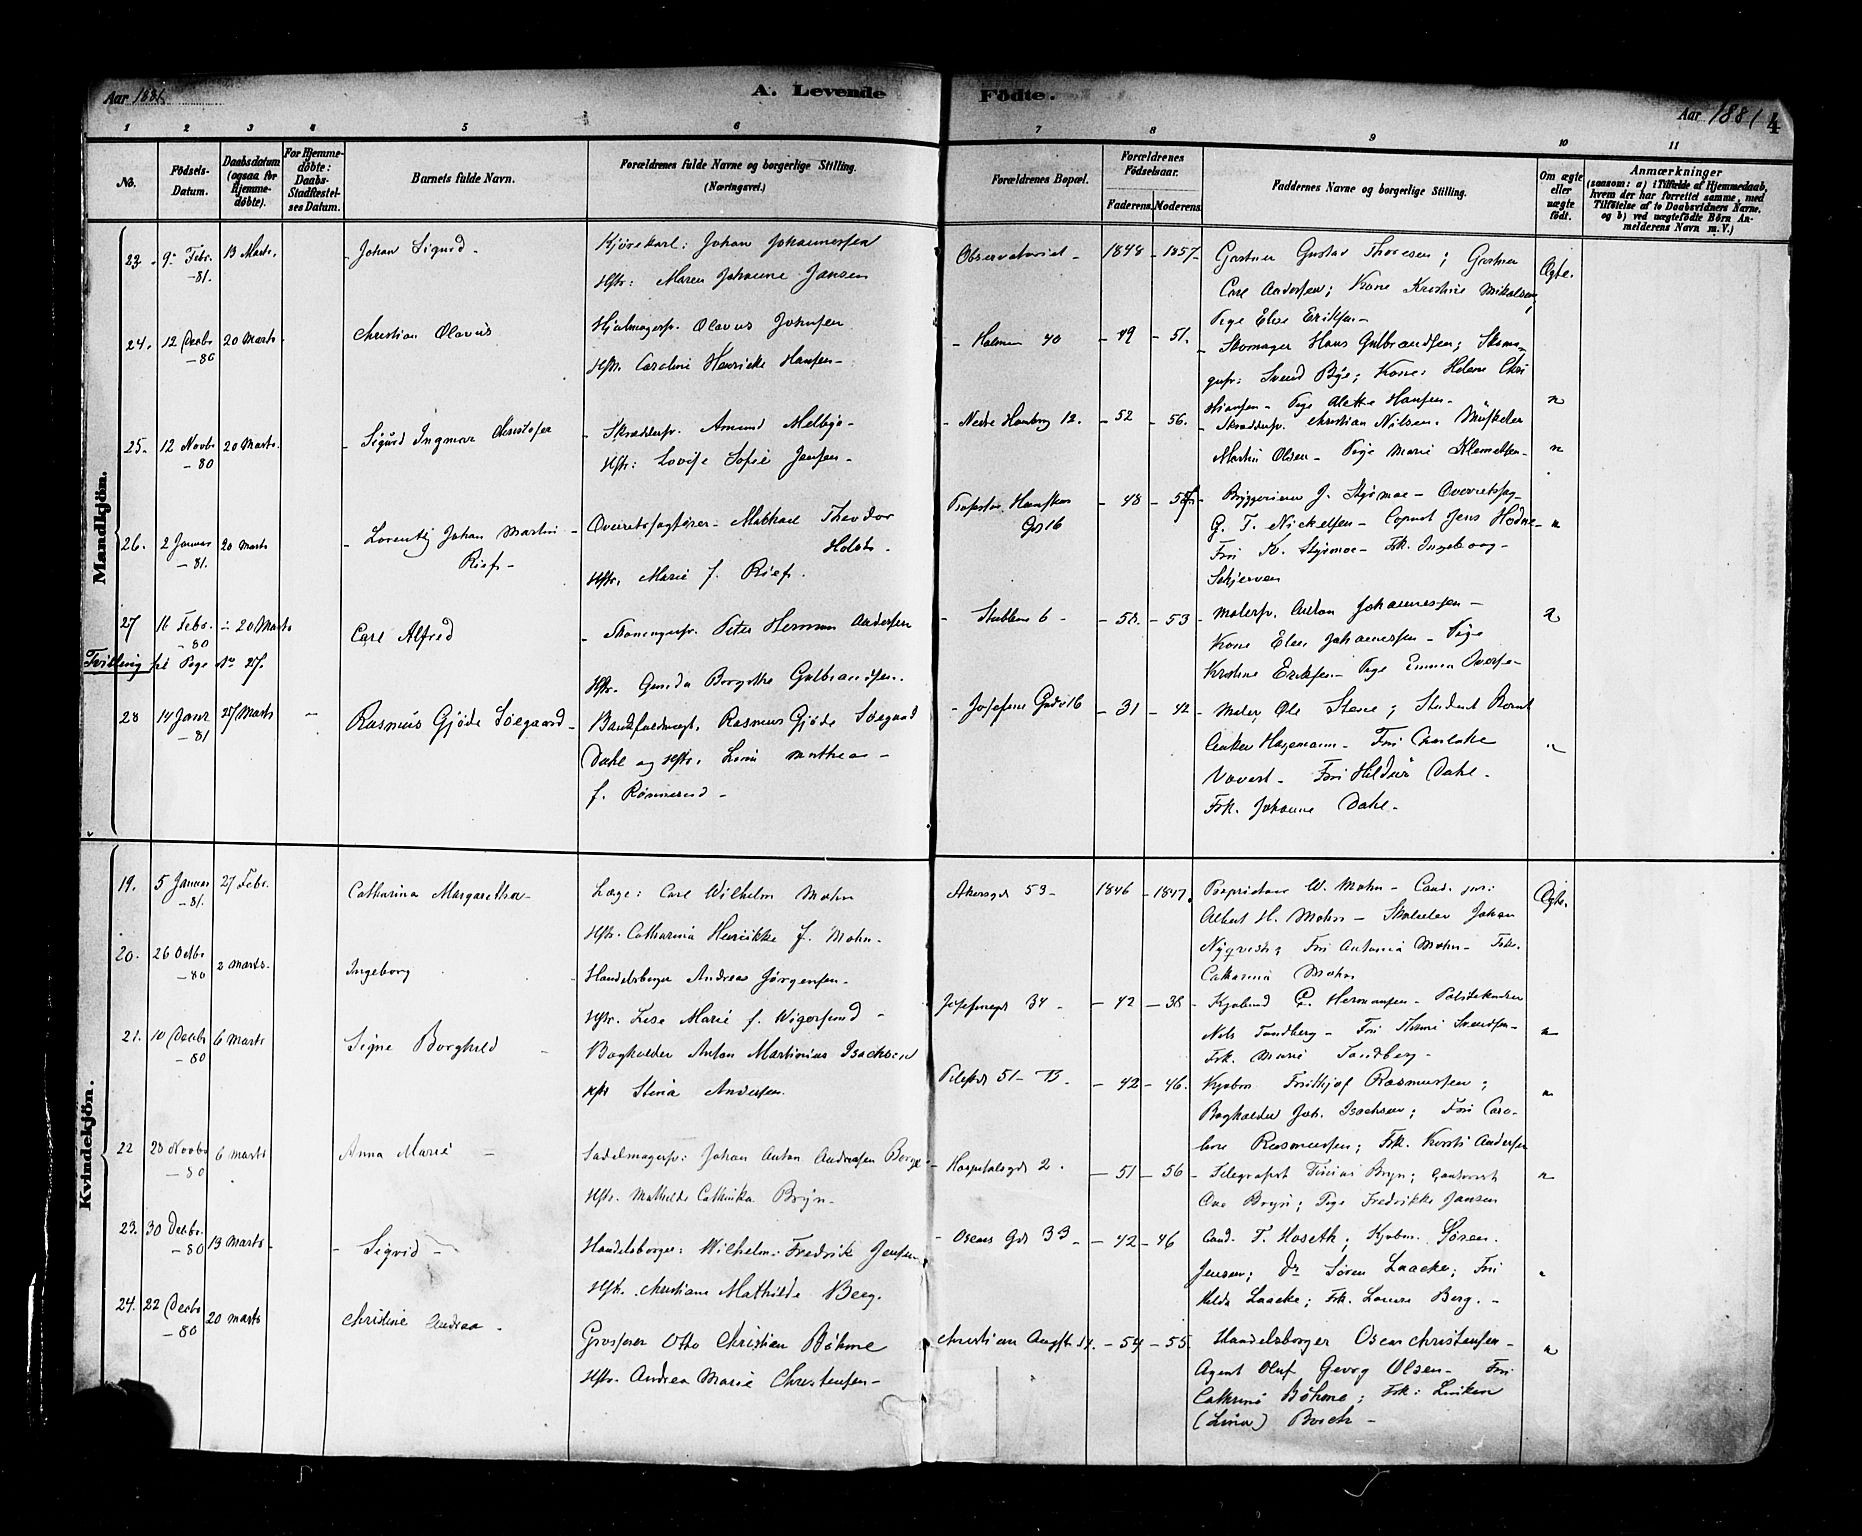 Aar 1881.
A. Levende Födte.
Aar 1881
4
1 2 3 4 5 6 7 8 9 10 11
No.
Födsels-Datum.
Daabsdatum (ogsaa for Hjemme-döbte).
For Hjemme-döbte: Daabs-Stadfæstel-ses Datum.
Barnets fulde Navn.
Forældrenes fulde Navne og borgerlige Stilling. (Næringsvei.)
Forældrenes Bopæl.
Forældrenes Födselsaar.
Faderens. Moderens.
Faddernes Navne og borgerlige Stilling.
Om ægte eller uægte födt.
Anmærkninger
(saasom: a) i Tilfælde af Hjemmedaab, hvem der har forrettet samme, med Tilföielse af to Daabsvidners Navne. og b) ved uægtefödte Börn An-melderens Navn m. V.)
Mandkjön.
23. 9. Febr. -81. 13 Marts. Johan Sigurd -
Kjörekarl: Johan Johannessen
Hstr: Maren Johanne Jansen
Observatoriet - 1848 - 1857-
Gartner Gustav Thoresen; Gartner
Carl Andersen; Kone Kristine Mikalsen;
Pige Elise Eriksen -
Ægte.
24. 12 Decbr -80 20 Marts Christian Olavus
Hjulmagersv. Olavus Johnsen
Hstr. Caroline Henrikke Hansen -
- Holmen 40 - 49 - 51.
- Skomager Hans Gulbrandsen; Skoma-
gersv: Svend Bye; Kone: Helene Chri
stiansen - Pige Alette Hansen -
25. 12 Novbr -80 20 Marts. - Sigurd Ingmar Christofer
- Skrædersv. Amund Melbye -
Hstr: Lovise Sofie Jensen -
- Nedre Hambrg 12. - 52 - 56.
- Skrædersv. Christian Nilsen. Muskeler
Martin Olsen - Pige Marie Klemetsen -
26. 2 Januar -81. 20 Marts - Lorentz Johan Martin Rief -
Overretssagförer - Mikhael Theodor Holst -
Hstr. Marie f. Rief.
Professor Hansteens Gd 16 - 48
Bryggerieier J. Stysmoe - Overretssag-
G. T. Nickelsen - Copist Jens Hodne -
Fru K. Stysmoe - Frk. Ingeborg -
Skjerven
27 16 Febr. -80 20 Marts Carl Alfred
Tvilling til Pige No 27.
- Peter Herman Andersen
Hstr. Gunda Borgithe Gulbrandsen.
- Stubben 6 - 53
Malersv. Anton Johannessen -
Kone Elen Johannessen - Pige
Kristine Eriksen - Pige Emma Overse -
28 14 Janr -81 27 Marts - Rasmus Gjöde Söegaard -
Rasmus Gjöde Söegaard
Dahl og Hstr. Lina Mathea -
f. Rönnerud -
- Josefine Gade 16 - 31 - 42
- Maler Ole Stene; Student Bernt
Anker Hagemann - Fru Charlotte
Fru Hildur Dahl -
Frk. Johanne Dahl -
Kvindekjön.
19. 5 Januar -81. 27 Febr. Catharina Margaretha -
Læge: Carl Wilhelm Mohn
Hstr. Catharina Henrikke f. Mohn -
Akersgd 53 - 1846 - 1847.
Proprietær W. Mohn - Cand. jur:
Albert H. Mohn - Skoleelev Johan
Nyqvist; Fru Antonia Mohn - Frk.
Catharina Mohn
Ægte.
20. 26 Octbr -80 2 Marts. Ingeborg
Handelsborger Andreas Jörgensen -
Hstr. Lise Marie f. Wigersund -
Josefinegd 34 - - 42 - 38
- Kjöbmd G. Hermansen -
Nils Sandberg - Fru Thomi Svendsen -
Frk. Marie Sandberg -
21. 10 Decbr -80 6 Marts Signe Borghild -
Bogholder Anton Martinius Isachsen
Hstr Stina Andersen.
Pilestd 51 - B. - 42 - 46.
Kjöbm Frithjof Rasmussen;
Bogholder Joh. Isachsen; Fru Caro-
line Rasmussen; Frk. Kirsti Andersen
22 28 Novbr -80 6 Marts Anna Marie -
Sadelmagersv: Johan Anton Andreasen Berge
Hstr. Mathilde Cathinka Bryn -
- Hospitalsgd 2. - 51 - 56
- Telegrafist Bryn;
Ove Bryn; Pige Fredrikke Jansen
23. 30 Decbr. -80 13 Marts - - Sigrid -
Handelsborger: Wilhelm Fredrik Jensen
Hstr. Christiane Mathilde Berg.
- Oscars Gd 33 - - 42 - 46
Cand. T. Hoseth; Kjöbm. Sören
Jensen; Dr Sören Laache; Fru
Hilda Laache; Frk. Louise Berg. -
24. 22 Decbr -80 20 Marts Christine Andrea -
Grosserer Otto Christian Böhme
Hstr. Andrea Marie Christensen -
Christian Augstsgd - 54 - 55.
Handelsborger Oscar Christensen -
Agent Oluf Georg Olsen - Fru
Cathrine Böhme; Frk: Liniken
(Lina) Borch -